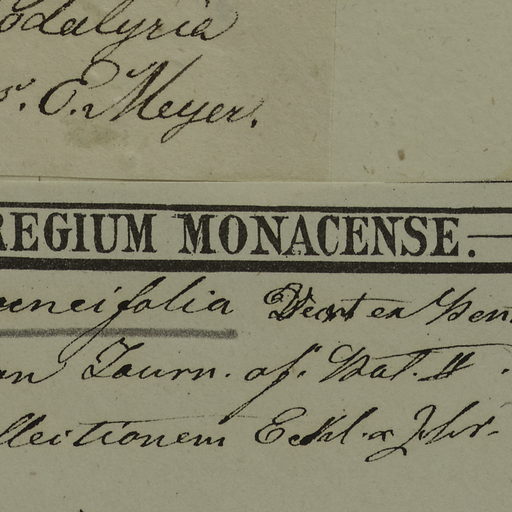 odalyria
r. E. Meyer.
REGIUM MONACENSE.
uncifolia Vent ex Hen
on Journ. of. Bot. II.
llectionem Eckl. & Zehr.